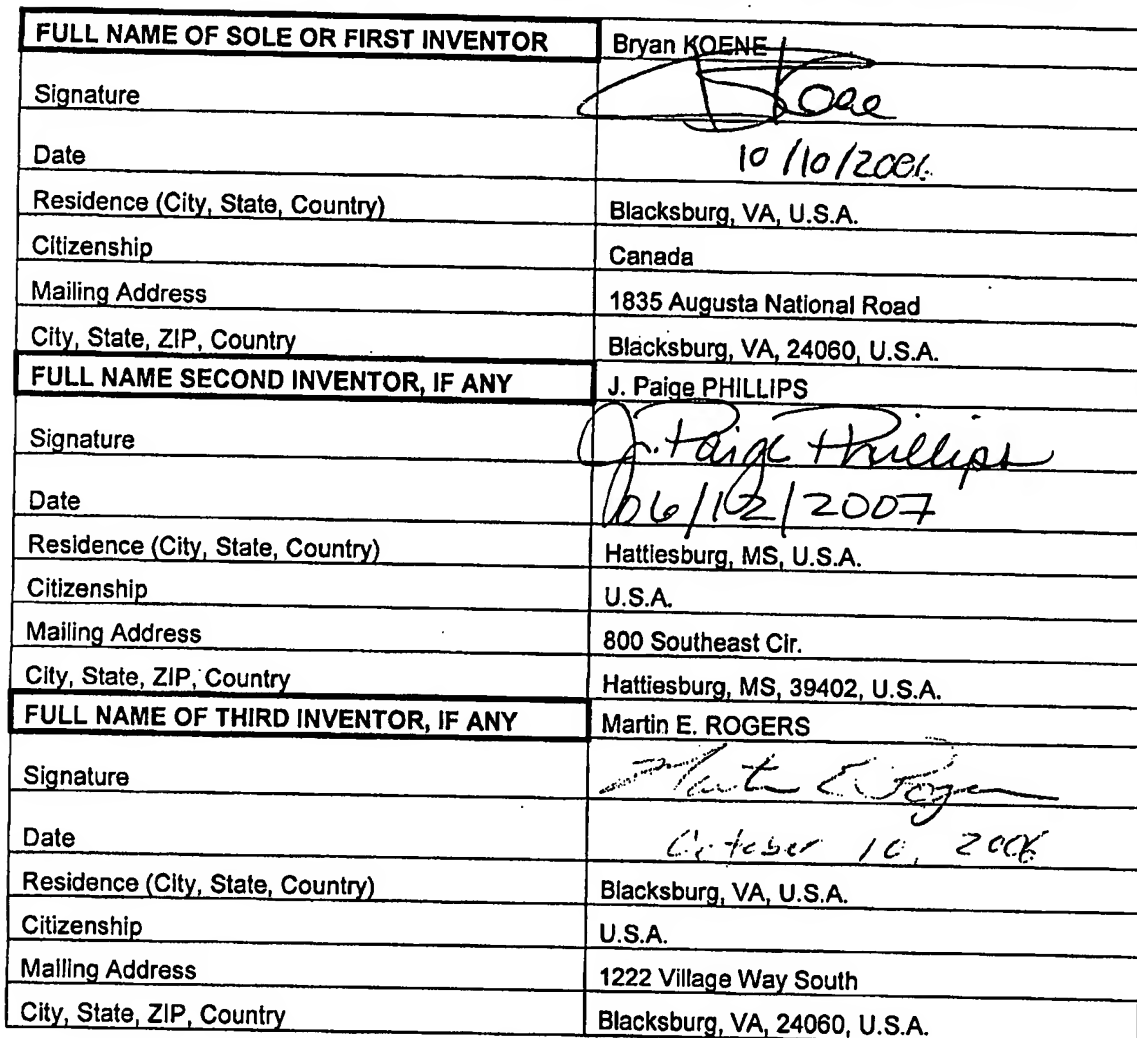 FULL NAME OF SOLE OR FIRST INVENTOR Bryan KOENE
Signature
Date 10/10/2006
Residence (City, State, Country) Blacksburg, VA, U.S.A.
Citizenship Canada
Mailing Address 1835 Augusta National Road
City, State, ZIP, Country Blacksburg, VA, 24060, U.S.A.
FULL NAME SECOND INVENTOR, IF ANY J. Paige PHILLIPS
Signature J. Paige Phillips
Date 06/12/2007
Residence (City, State, Country) Hattiesburg, MS, U.S.A.
Citizenship U.S.A.
Mailing Address 800 Southeast Cir.
City, State, ZIP, Country Hattiesburg, MS, 39402, U.S.A.
FULL NAME OF THIRD INVENTOR, IF ANY Martin E. ROGERS
Signature Martin E Rogers
Date October 10, 2006
Residence (City, State, Country) Blacksburg, VA, U.S.A.
Citizenship U.S.A.
Mailing Address 1222 Village Way South
City, State, ZIP, Country Blacksburg, VA, 24060, U.S.A.